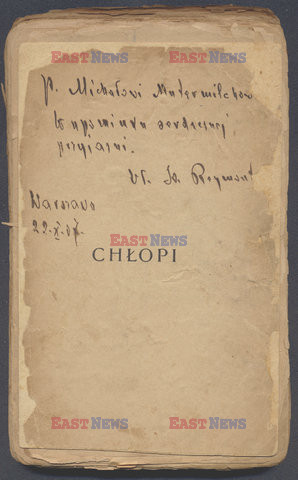 EAST NEWS EAST NEWS
P. Michałowi Mutermilchowi
w upominku serdecznej
przyjaźni.
Wł. St. Reymont
Warszawa
22.X.07.
EAST NEWS
CHŁOPI
EAST NEWS EAST NEWS